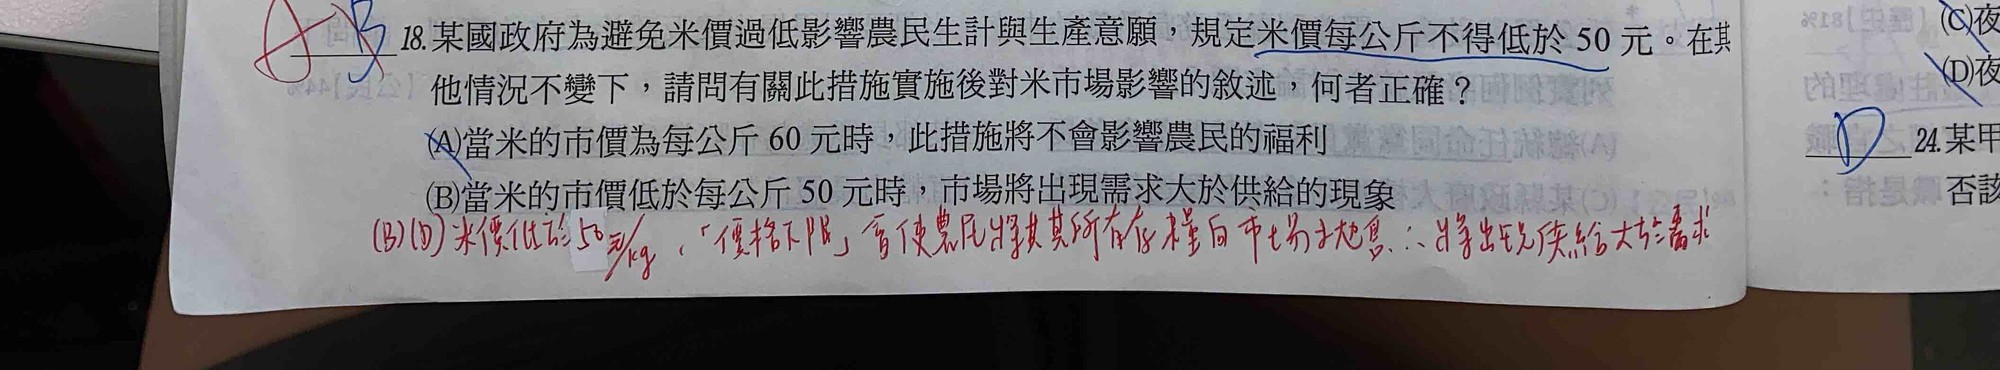 A B 18.某國政府為避免米價過低影響農民生計與生產意願，規定米價每公斤不得低於 50 元。在其
他情況不變下，請問有關此措施實施後對米市場影響的敘述，何者正確？
(A)當米的市價為每公斤 60 元時，此措施將不會影響農民的福利
(B)當米的市價低於每公斤 50 元時，市場將出現需求大於供給的現象
(B)(D) 米價低於50元/kg，「價格下限」會使農民將其所有存糧向市場拋售∴將出現供給大於需求
(C)夜
(D)夜
D 24.某甲
否該